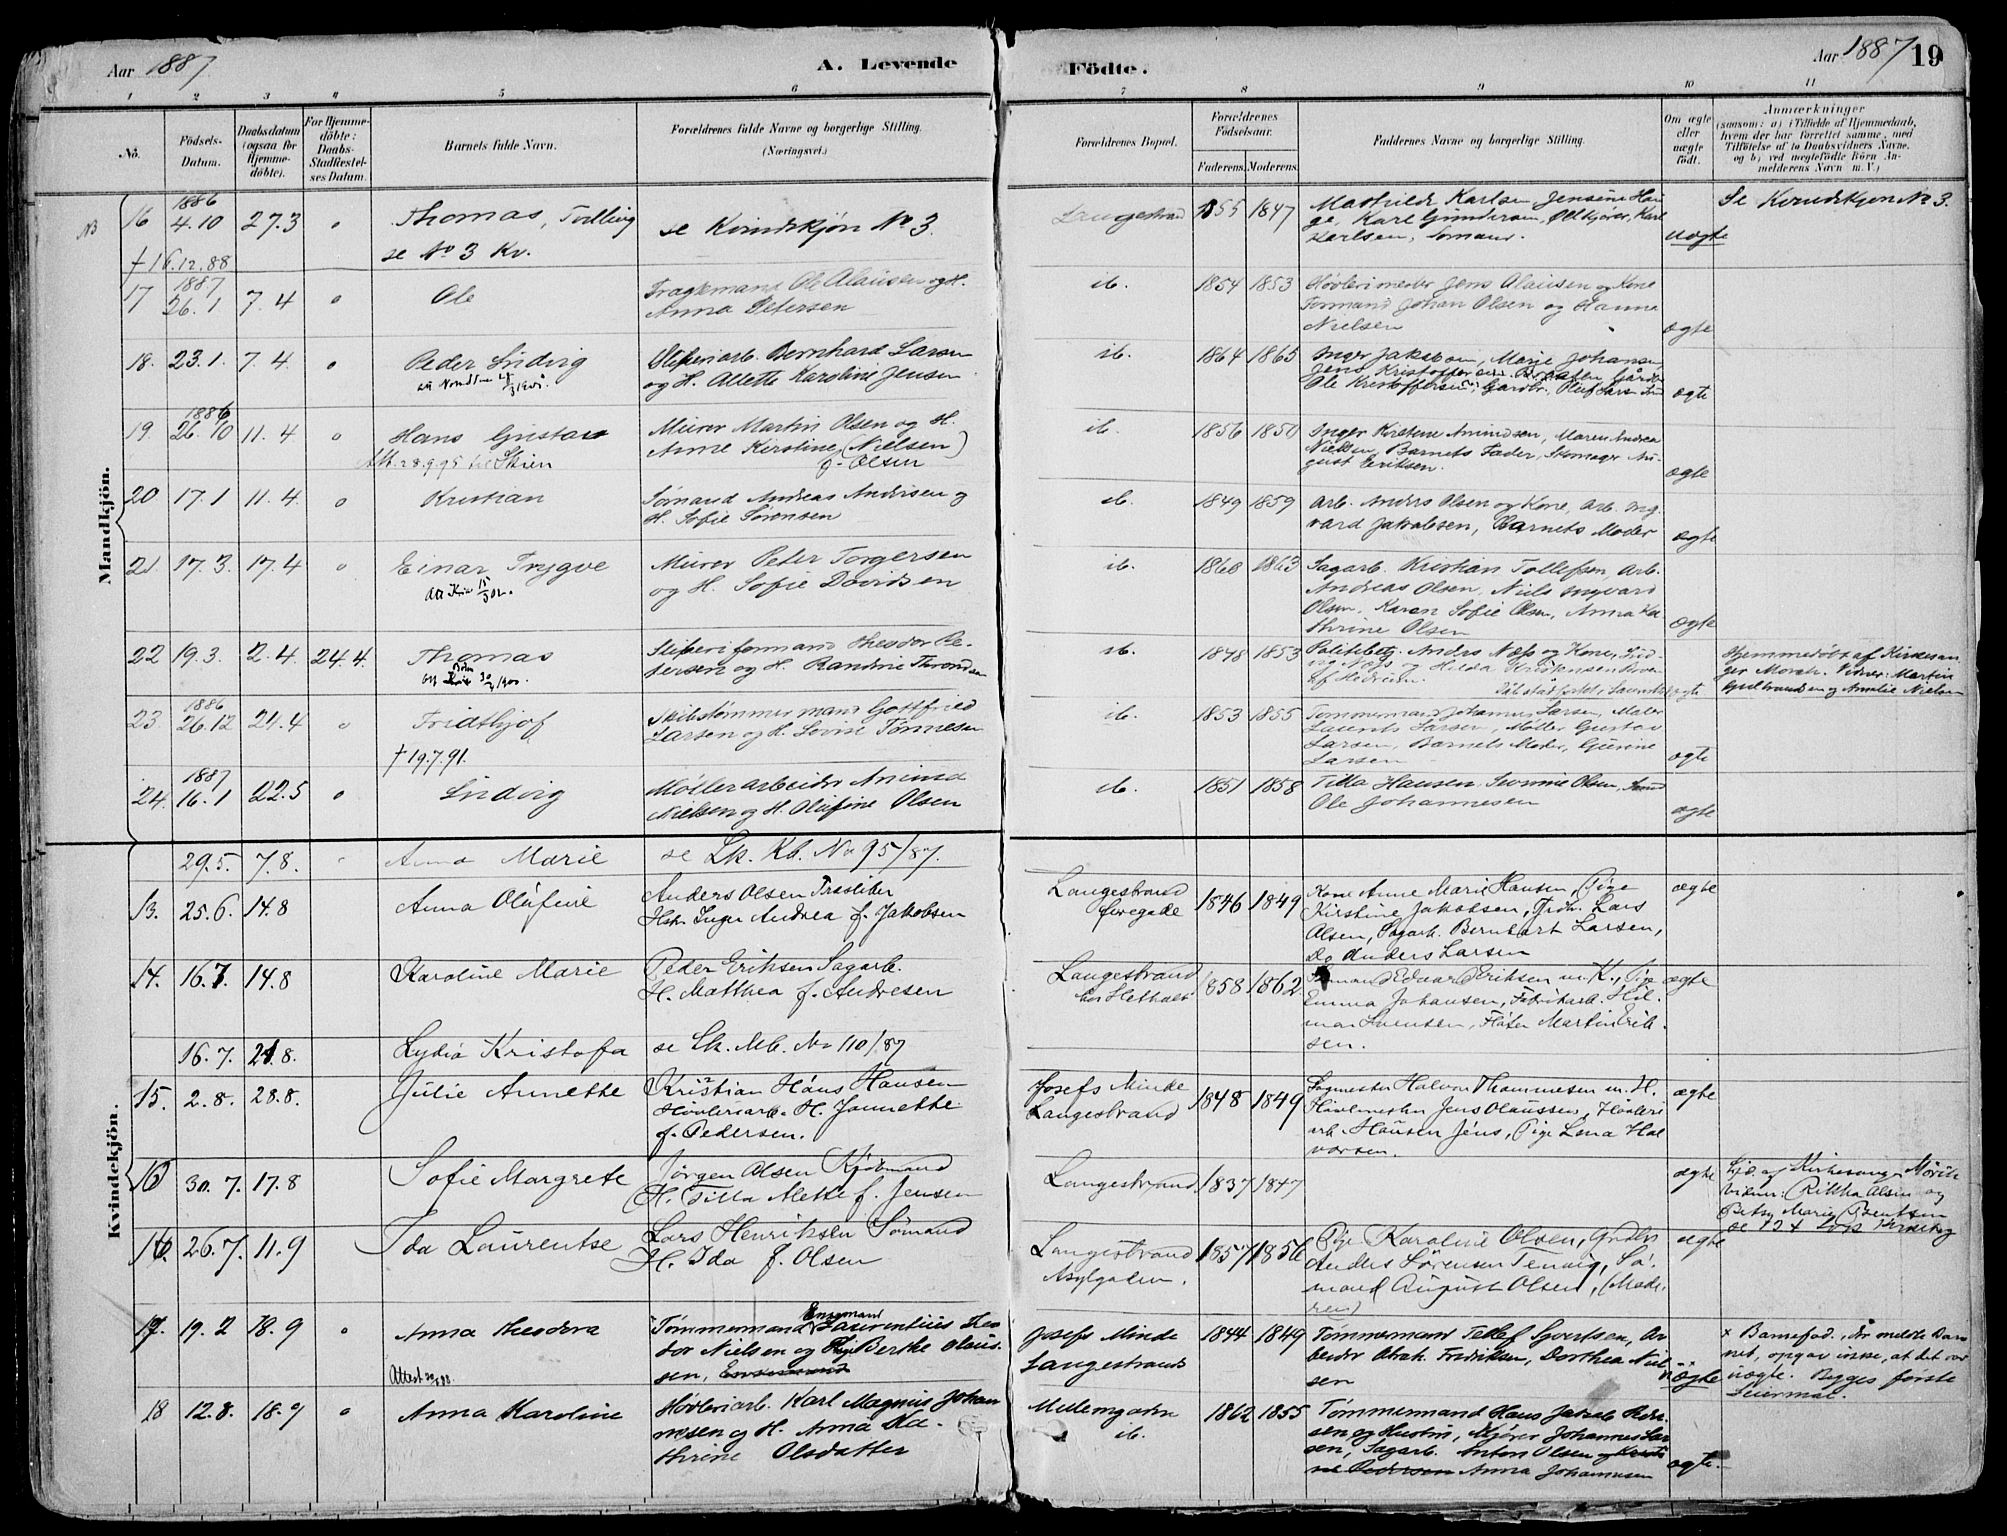 Aar 1887
A. Levende
Födte.
Aar 1887 19
1 2 3 4 5 6 7 8 9 10 11
No.
Födsels-
Datum.
Daabsdatum
(ogsaa for
Hjemme-
döbte).
For Hjemme-
döbte:
Daabs-
Stadfæstel-
ses Datum.
Barnets fulde Navn.
Forældrenes fulde Navne og borgerlige Stilling.
(Næringsvei.)
Forældrenes Bopæl.
Forældrenes
Födselsaar.
Faderens. Moderens.
Faddernes Navne og borgerlige Stilling.
Om ægte
eller
uægte
födt.
Anmærkninger
(saasom: a) i Tilfælde af Hjemmedaab,
hvem der har forrettet samme, med
Tilföielse af to Daabsvidners Navne.
og b) ved uægtefödte Börn An-
melderens Navn m. V.)
Mandkjön.
NB 16 1886 4.10 27.3 " Thomas, Tvilling
se No 3 Kv.
† 16.12.88
se Kvindekjøn No 3.
Langestrand 1855 1847 Mathilde Karlsen, Jensine Hau-
ge, Karl Gundersen, Karl
Karlsen, Sømænd.
uægte
Se Kvindekjøn No 3.
17 1887 26.1 7.4 " Ole
Ole Olaussen og H.
Anna Petersen
ib. 1854 1853 Høvlerimester Jens Olaussen og Kone
Formand Johan Olsen og Hanna
Nielsen
ægte
18. 23.1. 7.4 " Peder Ludvig
Sliberiarb. Bernhard Larsen
og H. Allette Karoline Jensen
ib. 1864 1865 Inger Jakobsen, Marie Johansen
Jens Kristoffersen
Ole Kristoffersen, Gaardbr., Oluf Larsen
ægte
19. 1886 26.10 11.4 " Hans Gustav
Att. 28.9.95 til Skien
Murer Martin Olsen og H.
Anne Kirstine (Nielsen)
f. Olsen
ib. 1856 1850 Inger Kirstine Amundsen, Maren Andrea
Nielsen, Barnets Fader, Skomager Au-
gust Eriksen.
ægte
20 17.1 11.4 " Kristian
Sømand Andreas Andersen og
H. Sofie Sørensen
ib. 1849 1859 Arb. Anders Olsen og Kone, Arb. Ing-
vard Jakobsen, Barnets Moder
ægte
21. 17.3. 17.4 " Einar Trygve
Murer Peter Torgersen
og H. Sofie Davidsen
ib. 1860 1863 Sagarb. Kristian Tollefsen, Arb.
Andreas Olsen, Niels Ingvard
Olsen, Karen Sofie Olsen, Anna Ka
thrine Olsen
ægte
22 19.3. 2.4. 24.4. Thomas
Sliberiformand Theodor Pe-
tersen og H. Randine Throndsen
ib. 1848 1853 Politibetj. Anders Næss og Kone, Lud-
vig Næss og Hilda Kristensen
af Hedrum.
ægte
Hjemmedøbt af Kirkesan-
ger Morch. Vidner: Martin
Gulbrandsen og Amalie Nielsen
23. 1886 26.12 24.4 " Fridthjof
† 19.7.91.
Skibstømmermand Gottfried
Larsen og H. Lovise Tønnesen
ib. 1853 1855 Tømmermand Johannes Larsen, Maler
Laurits Larsen, Møller Gustav
Larsen, Barnets Moder, Gurine
Larsen
ægte
24. 1887 16.1 22.5 " Ludvig
Møllerarbeider Amund
Nielsen og H. Olufine Olsen
ib. 1851 1858 Tilla Hansen, Olsen,
Ole Johannesen
ægte
Kvindekjön.
29.5. 7.8. " Anna Marie se Lk. Kb. No 95/87.
13. 25.6. 14.8 Anna Olufine
Anders Olsen Træsliber
Hstr. Inger Andrea f. Jakobsen
Langestrand
øvregade 1846 1849 Kone Anne Marie Hansen, Pige
Kirstine Jakobsen, Lars
Olsen, Sagarb. Bernhart Larsen,
Do Anders Larsen
ægte
14. 16.7. 14.8 Karoline Marie
Peder Eriksen Sagarb.
H. Matthea f. Andresen
Langestrand
1858 1862 Edvard Eriksen m. K., Pige
Emma Johansen, Fabrikarb. Hil-
mar Svensen, Fløter Martin Erik-
sen.
ægte
16.7. 21.8. Lydia Kristofa se Lk. Mb. No 110/87
15. 2.8. 28.8. Julie Annette
Kristian Hans Hansen
Høvleriarb. H. Jannette
f. Pedersen.
Josefs Minde
Langestrand 1848 1849 Sagmester Halvor Thommesen m. H.
Høvlmester Jens Olaussen, Høvleri
arb. Hansen Jens, Pige Lena Hal
vorsen.
ægte
16 30.7. 17.8 Sofie Margrete
Jørgen Olsen Kjøbmand
H. Tilla Mette f. Jensen
Langestrand 1837 1847
ægte
Kirkesanger Mørch
Vidner: Rikka Olsen og
Betsy Marie Bentsen
16. 26.7. 11.9 Ida Laurentse
Lars Henriksen Sømand
H. Ida f. Olsen
Langestrand
Asylgaden. 1857 1856 Pige Karoline Olsen,
Anders Sørensen Tenvig, Sø-
mand August Olsen, (Mode-
ren)
ægte
17. 19.2 18.9 " Anna Theodora
Tømmermand Enkemand Laurentius Teo
dor Nielsen og Pige Berthe Olaus-
sen, Enkemand
Josefs Minde
Langestrand 1844 1849 Tømmermand Tellef Syvertsen, Ar
beider Abrah. Fredriksen, Dorthea Niel
sen
uægte
× Barnefad., der meldte Bar
net, opgav ikke, at det var
uægte. Begges første
Leiermaal.
18 12.8. 18.9 " Anna Karoline
Høvleriarb. Karl Magnus Johan
nesen og H. Anna Ka-
thrine Olsdatter
Mellemgaden
ib. 1862 1855 Tømmermand Hans Jakob Peder
sen og Hustru, Johannes Lar
sen, Sagarb. Anton Olsen og Kirsti
ne Pedersen Anna Johannesen
ægte.